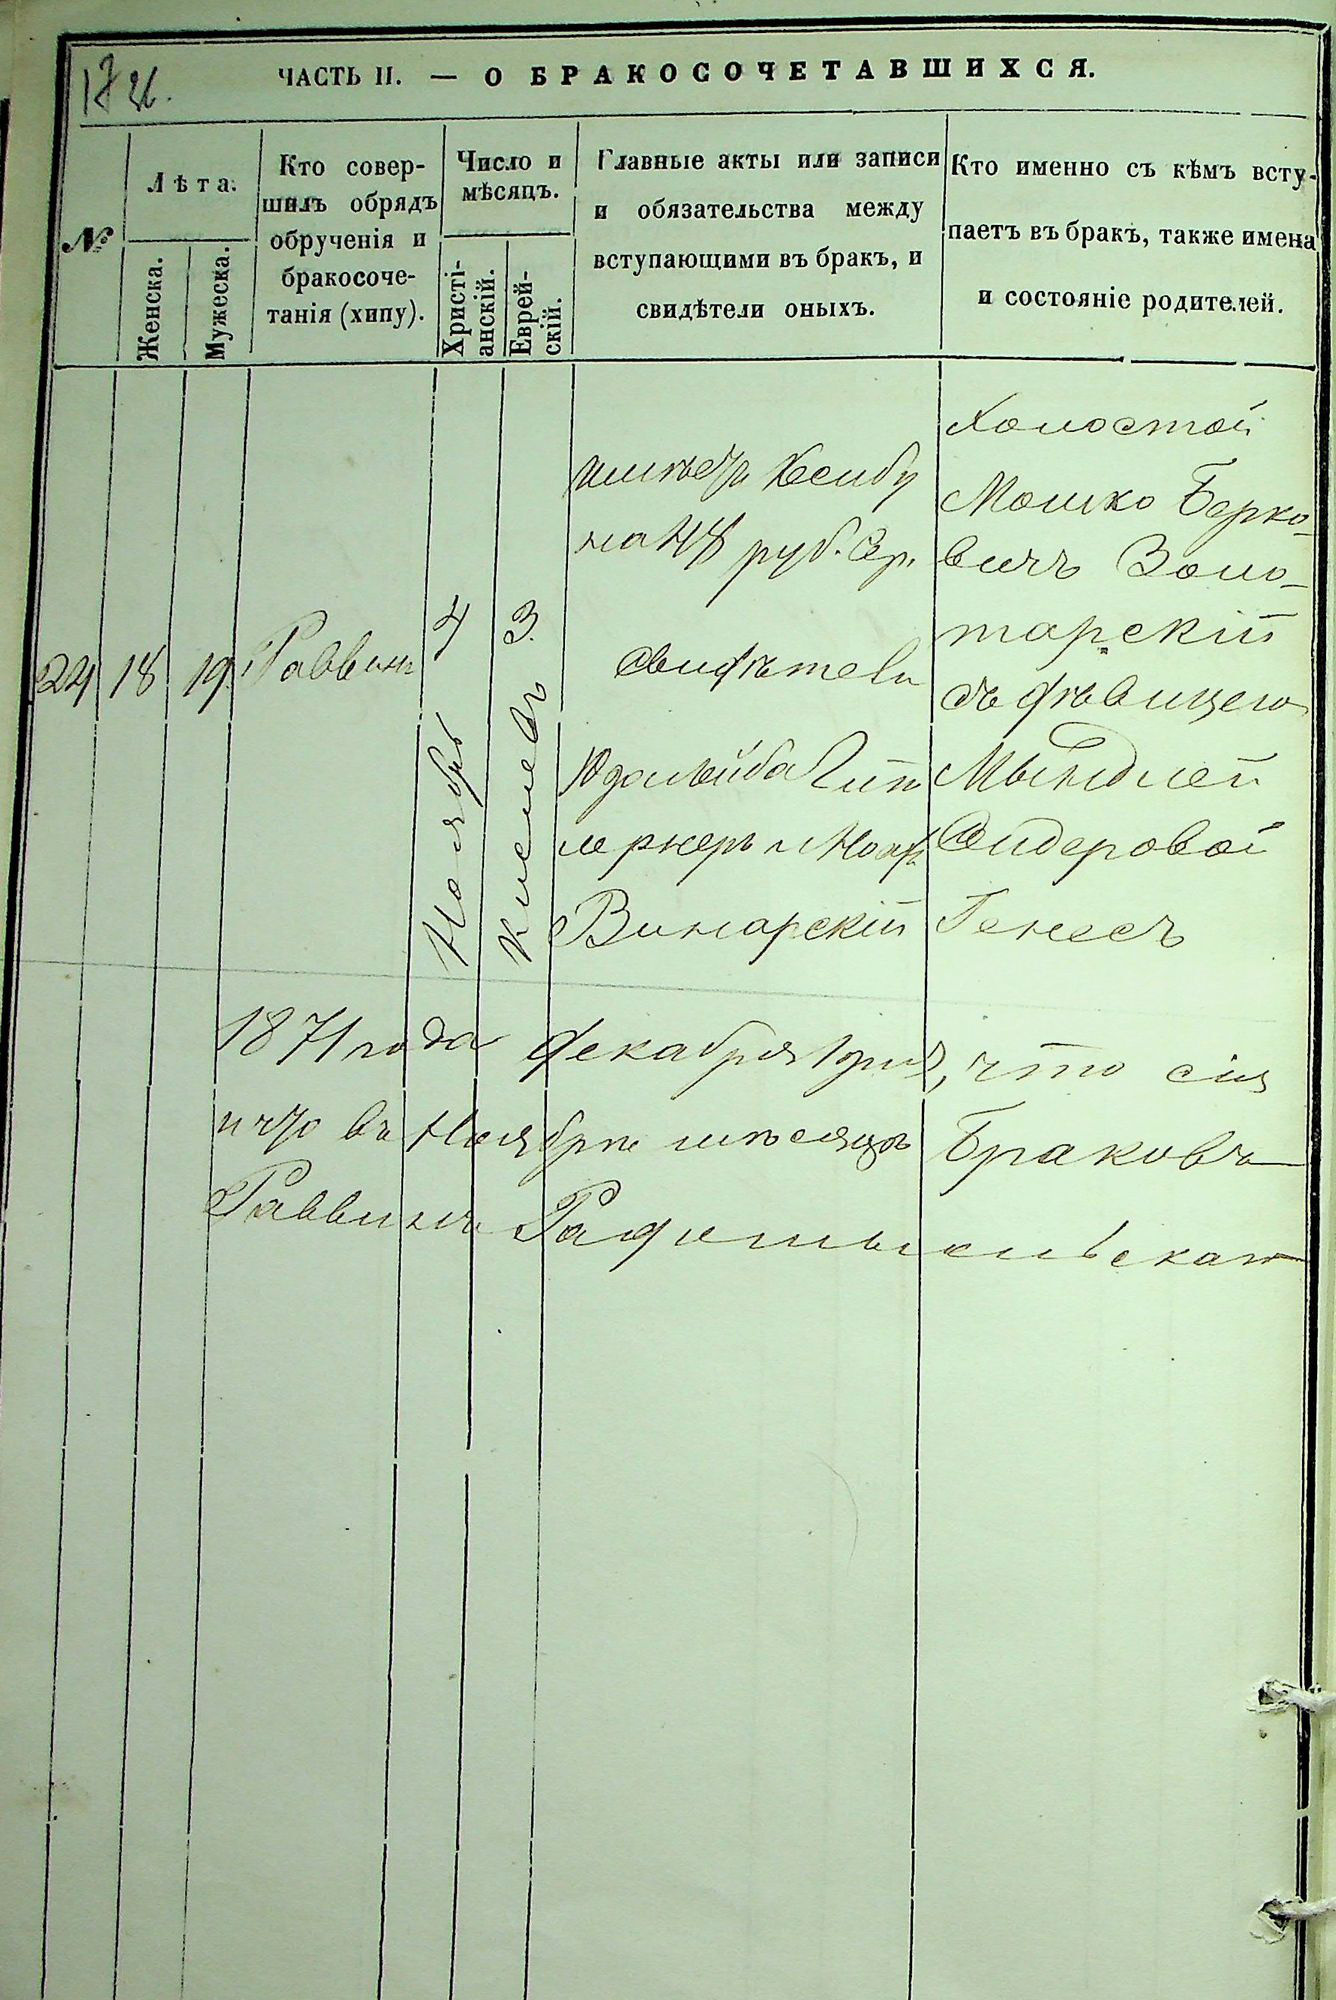 ЧАСТЬ II. — О БРАКОСОЧЕТАВШИХСЯ.
№
Лѣта.
Женска.
Мужеска.
Кто совер-
шилъ обрядъ
обрученія и
бракосоче-
танія (хипу).
Число и
мѣсяцъ.
Христі-
анскій.
Еврей-
скій.
Главные акты или записи
и обязательства между
вступающими въ бракъ, и
свидѣтели оныхъ.
Кто именно съ кѣмъ всту-
паетъ въ бракъ, также имена
и состояніе родителей.
24
18
19.
Раввинъ
4
Ноябрь
3.
Кислевъ
имѣетъ Ксибу
на 48 руб. Сер.
Свидѣтели
леркеръ и
Винарскій
Холостой
Мошко Берко-
вичъ Золо-
тарскій
съ дѣвицею
Мындлей
Сидеровой
Генесъ
1871 года Декабря 1 дня, что сія
и что въ Ноябрѣ мѣсяцѣ Браковъ
Раввинъ